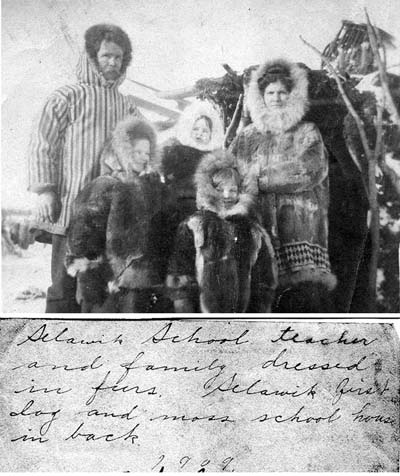 Selawik School teacher
and family dressed
in furs. Selawik first
log and moss school house
in back
1929.